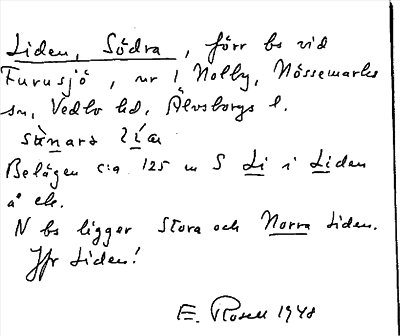 Liden, Södra, förr bs vid
Furusjö, nr 1 Nolby, Nössemarks
sn, Vedbo hd, Älvsborgs l.
Belägen c:a 125 m S Li i Liden
å ek.
N bs ligger Stora och Norra Liden.
Jfr Liden!
E. Rosell 1948